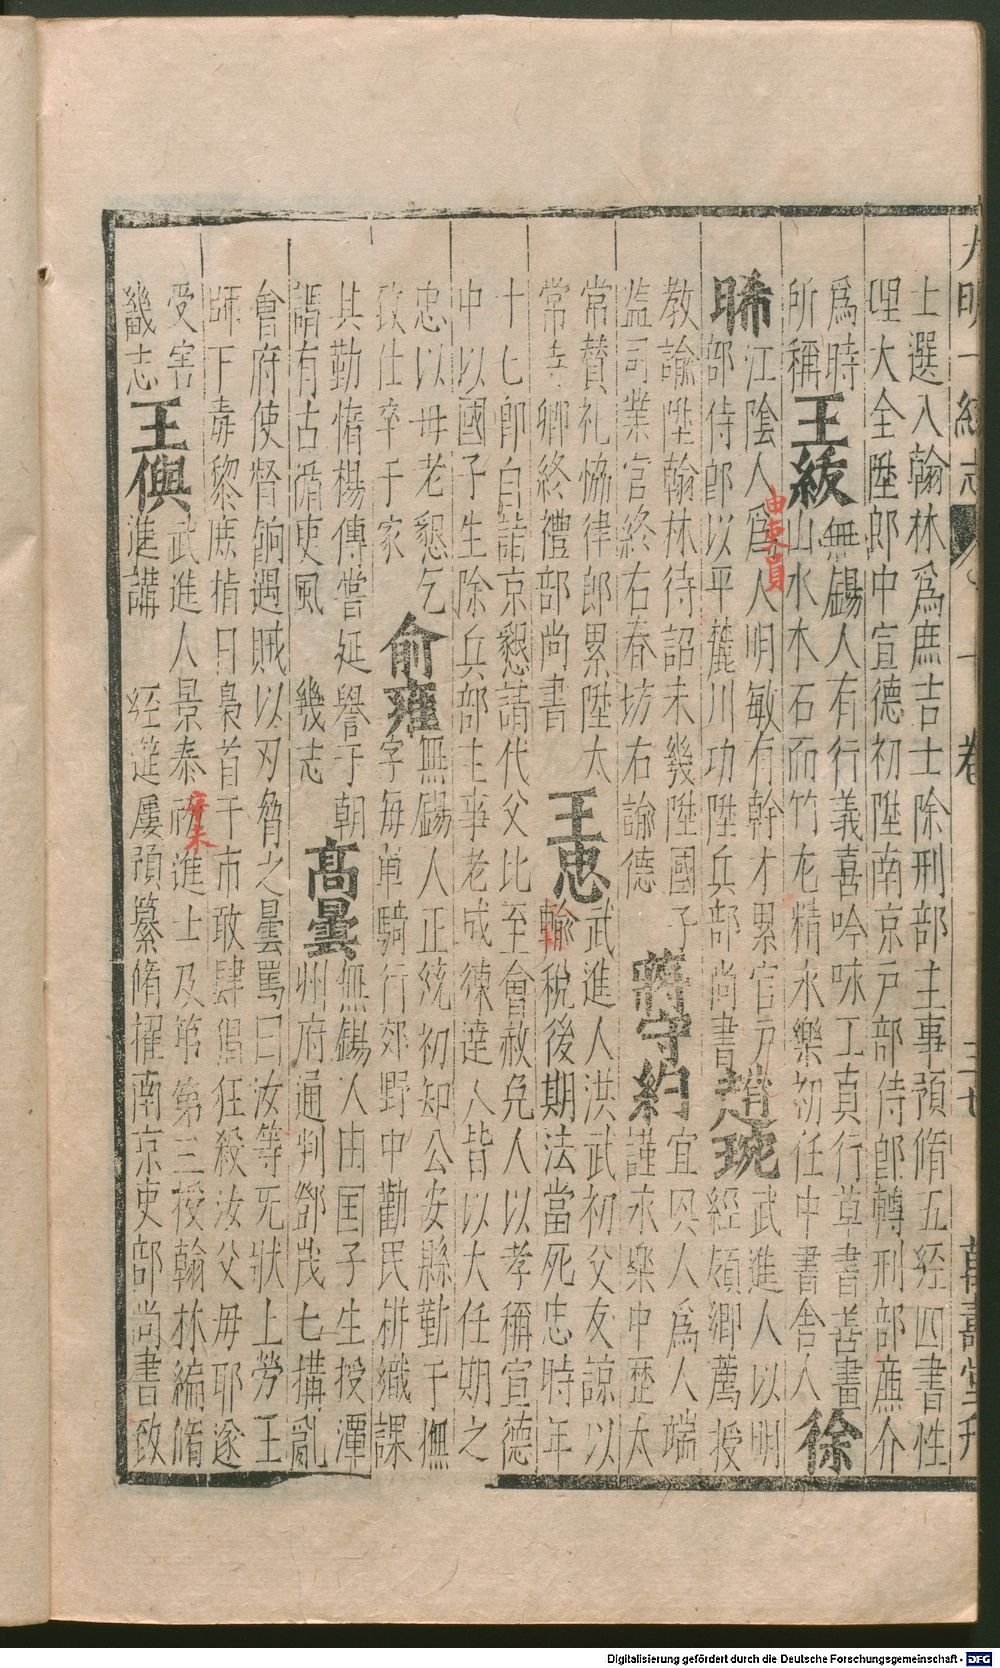 大明一統志 卷 十 三七 萬壽堂刊
士選入翰林爲庶吉士除刑部主事預脩五經四書性
理大全陞郎中宣德初陞南京戶部侍郎轉刑部廉介
爲時
所稱
王紱
無錫人有行義喜吟咏工真行草書善畫
山水木石而竹尤精永樂初任中書舍人
徐
晞
江陰人爲人明敏有幹才累官戶
部侍郎以平麓川功陞兵部尚書
由吏員
趙琬
武進人以明
經頻鄉薦授
教諭陞翰林待詔未幾陞國子
監司業官終右春坊右諭德
蔣守約
宜興人爲人端
謹永樂中歷太
常贊礼恊律郎累陞太
常寺卿終禮部尚書
王忠
武進人洪武初父友諒以
輸稅後期法當死忠時年
十七即自詣京懇請代父比至會赦免人以孝稱宣德
中以國子生除兵部主事老成練達人皆以大任期之
忠以母老懇乞
致仕卒于家
俞雍
無錫人正統初知公安縣勤于撫
字每单騎行郊野中勸民耕織課
其勤惰楊傳嘗延譽于朝
謂有古循吏風 幾志
高曇
無錫人由国子生授潭
州府通判鄧茂七搆亂
會府使督餉遇賊以刃脅之曇罵曰汝等旡狀上勞王
師下毒黎庶指日梟首于市敢肆猖狂殺汝父毋耶遂
受害
畿志
王㒜
武進人景泰 進士及第第三授翰林編脩
進講 經筵屢預纂脩擢南京吏部尚書致
辛未
Digitalisierung gefördert durch die Deutsche Forschungsgemeinschaft - DFG